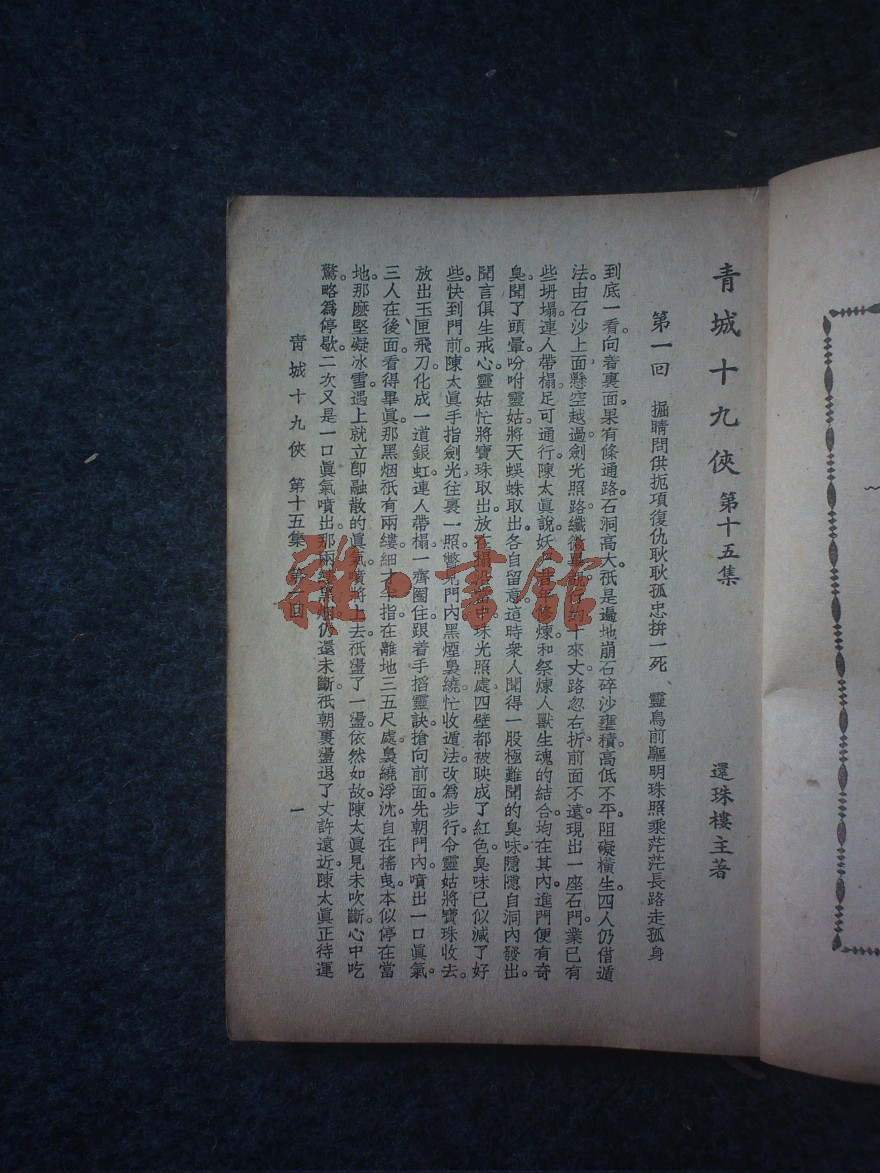 青城十九俠 第十五集
還珠樓主著
第一回 掘睛問供扼項復仇耿耿孤忠拚一死 靈鳥前驅明珠照乘茫茫長路走孤身
到底一看向着裏面果有條通路石洞高大祇是遍地崩石碎沙壅積高低不平阻礙橫生四人仍借遁
法由石沙上面懸空越過劍光照路纖微畢 十來丈路忽右折前面不遠現出一座石門業已有
些坍塌連人帶榻足可通行陳太眞說妖 煉和祭煉人獸生魂的結合均在其內進門便有奇
臭聞了頭暈吩咐靈姑將天蜈蛛取出各自留意這時衆人聞得一股極難聞的臭味隱隱自洞內發出
聞言俱生戒心靈姑忙將寶珠取出放在 中珠光照處四壁都被映成了紅色臭味已似減了好
些快到門前陳太眞手指劍光往裏一照瞥見門內黑煙裊繞忙收遁法改爲步行令靈姑將寶珠收去
放出玉匣飛刀化成一道銀虹連人帶榻一齊圈住跟着手搯靈訣搶向前面先朝門內噴出一口眞氣
三人在後面看得畢眞那黑烟祇有兩縷細才半指在離地三五尺處裊繞浮沈自在搖曳本似停在當
地那麼堅凝冰雪遇上就立卽融散的眞氣噴將上去祇盪了一盪依然如故陳太眞見未吹斷心中吃
驚略爲停歇二次又是一口眞氣噴出那兩縷黑烟仍還未斷祇朝裏盪退了丈許遠近陳太眞正待運
青城十九俠 第十五集 第一回
一
雅·書館